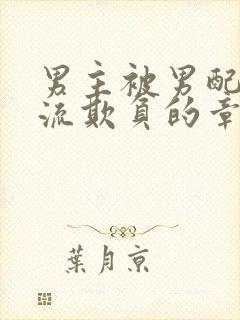 男主被男配
流欺負的章
葉月京